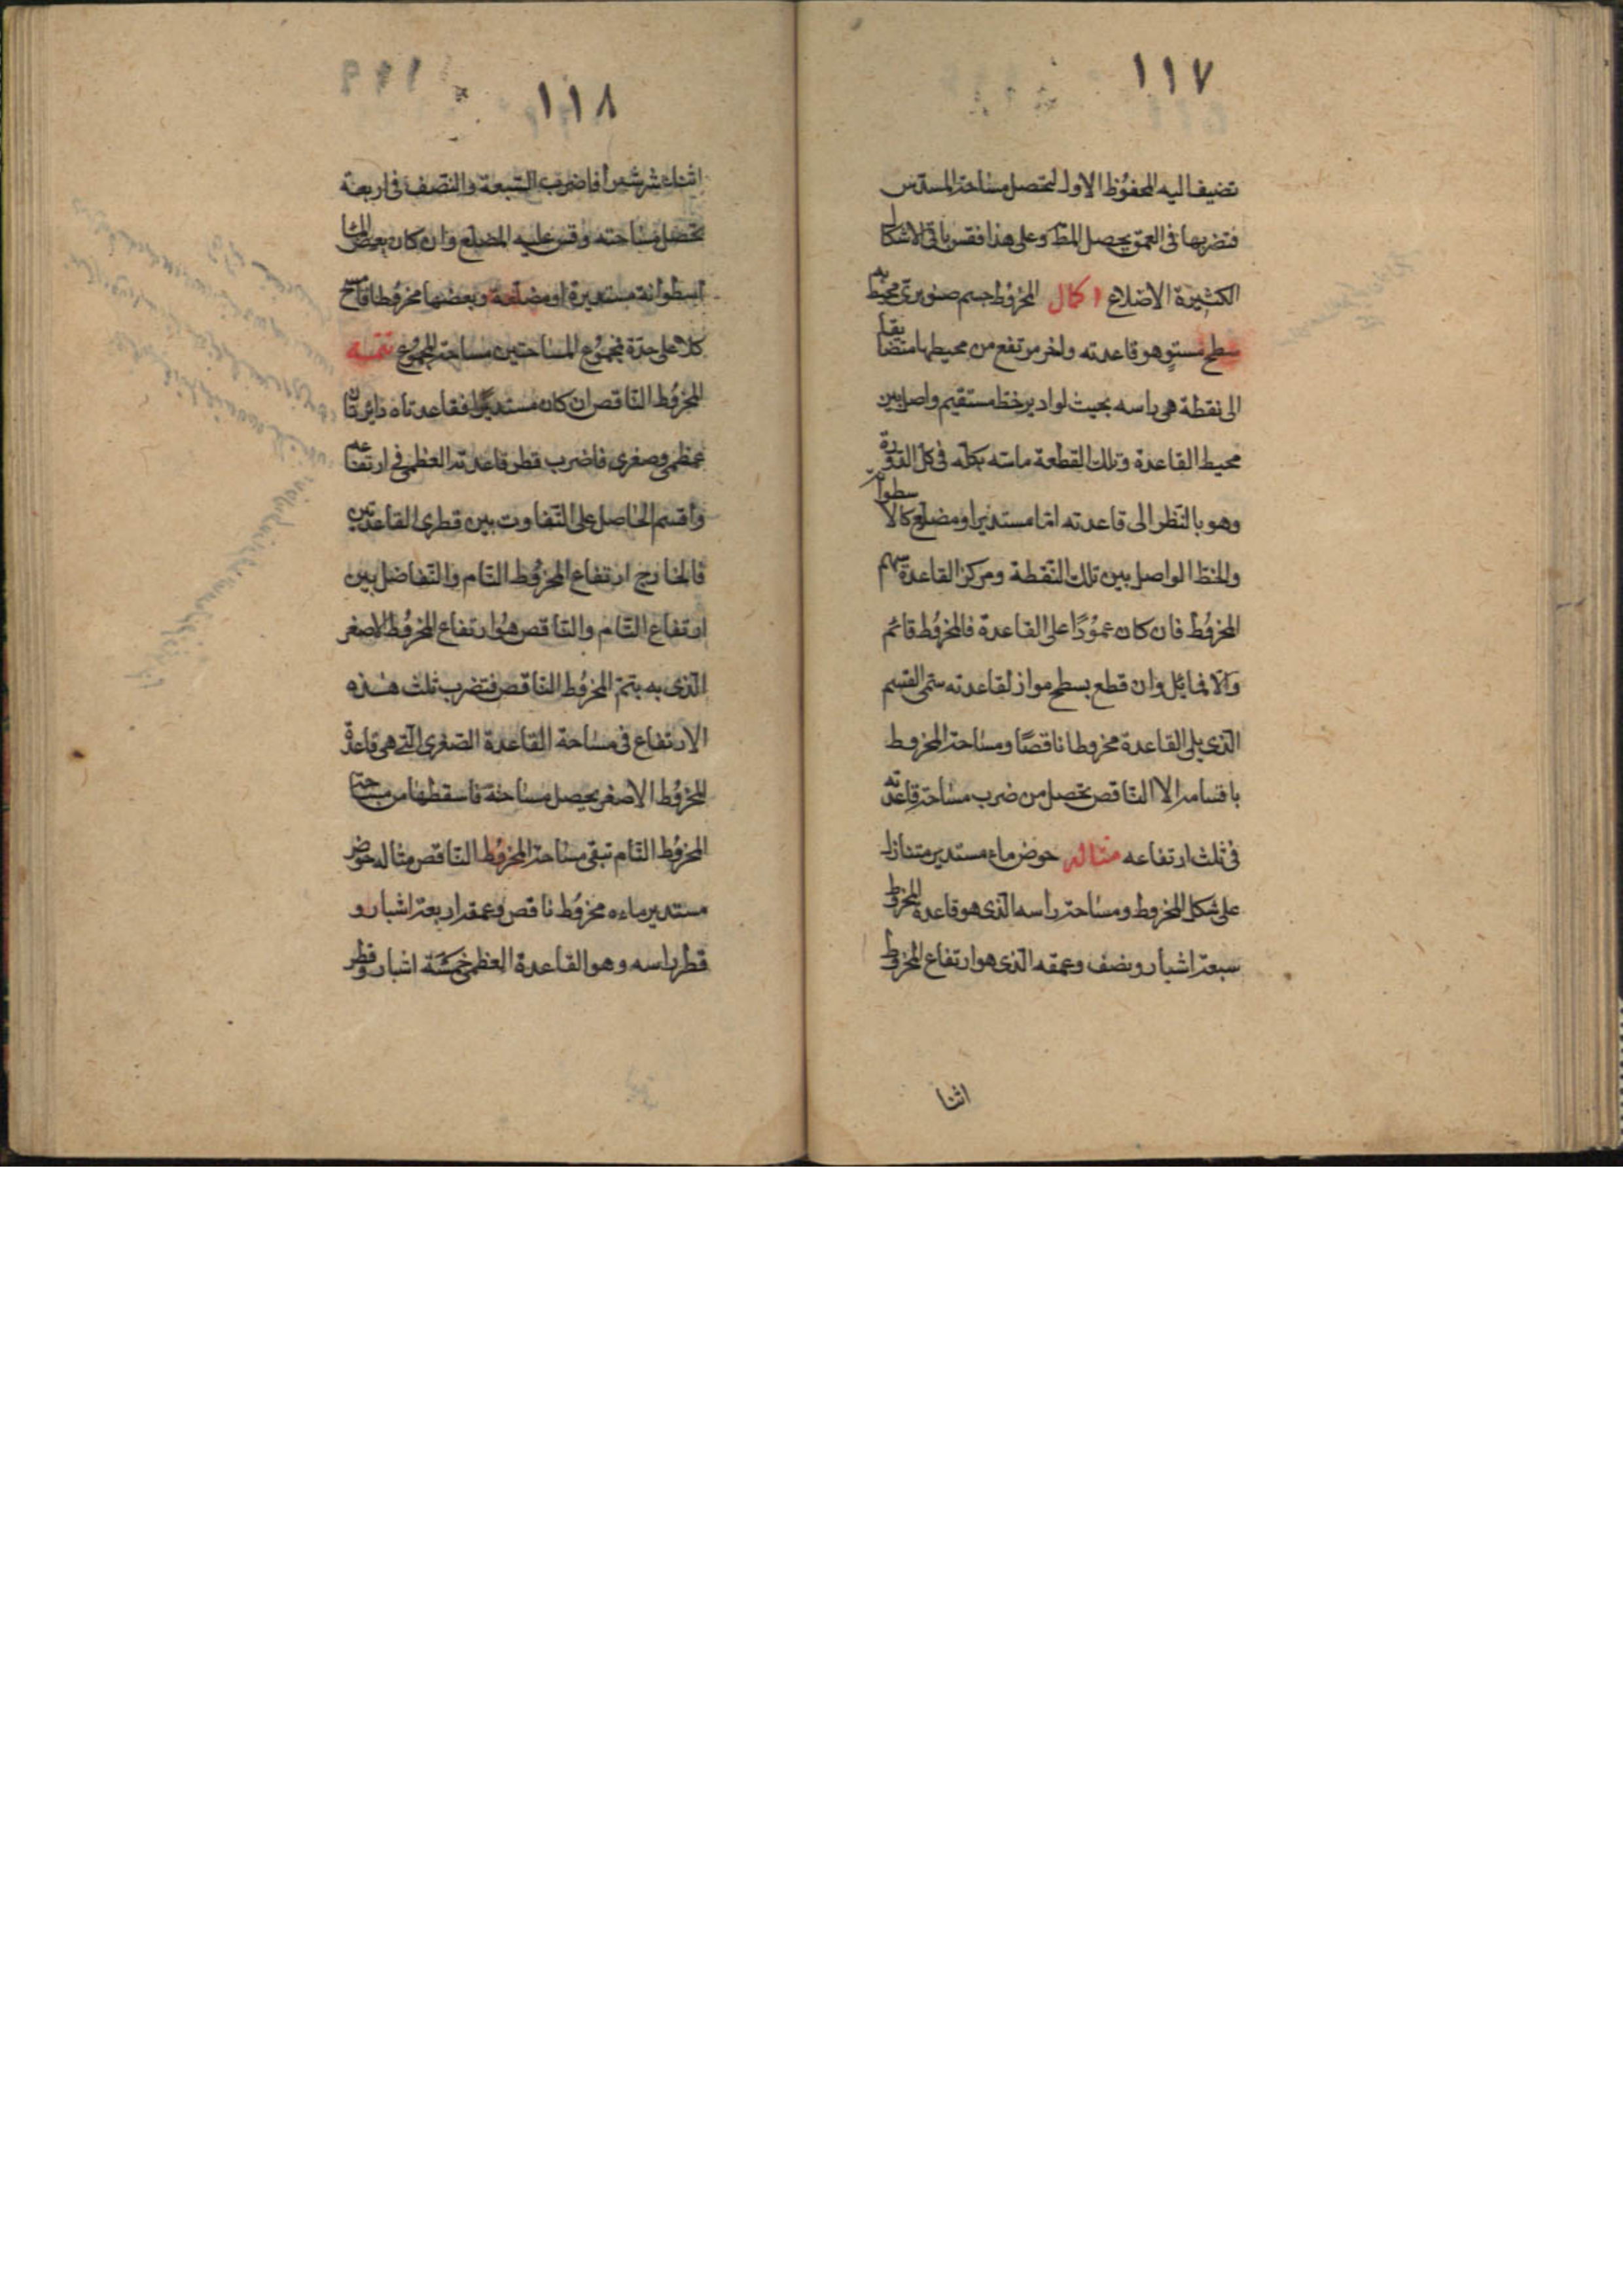 ١١٧
تضيف اليه المحفوظ الاول لتحصل مساحة المسدس
فتضربها فى العمق يحصل المط وعلى هذا فقس باقى الاشكال
الكثيرة الاضلاع اكمال المخروط جسم صنوبرى محيط به
سطح مستو هو قاعدته واخر مرتفع من محيطها متضايقا
الى نقطة هى راسه بحيث لو ادير خط مستقيم واصل بين
محيط القاعدة وتلك القطعة ماسه بكله فى كل الدورة
وهو بالنظر الى قاعدته اما مستديرا ومضلع كالاسطوانة
والخط الواصل بين تلك النقطة ومركز القاعدة سهم
المخروط فان كان عمودا على القاعدة فالمخروط قائم
والا فمايل وان قطع بسطح مواز لقاعدته سمى القسم
الذى يلى القاعدة مخروطا ناقصا ومساحة المخروط
باقسامه الا الناقص تحصل من ضرب مساحة قاعدته
فى ثلث ارتفاعه مثاله حوض ماء مستدير متنازل
على شكل المخروط ومساحة راسه الذى هو قاعدة المخروط
سبعة اشبار ونصف وعمقه الذى هو ارتفاع المخروط
اثنا
١١٨
اثنا عشر شبرا فاضرب السبعة والنصف فى اربعة
تحصل مساحته وقس عليه المضلع وان كان بعض
اسطوانة مستديرة او مضلعة وبعضها مخروطا فامسح
كلا على حدة فمجموع المساحتين مساحة المجموع تتمة
المخروط الناقص ان كان مستديرا فقاعدتاه دايرتان
عظمى وصغرى فاضرب قطر قاعدته العظمى فى ارتفاعه
واقسم الحاصل على التفاوت بين قطرى القاعدتين
فالخارج ارتفاع المخروط التام والتفاضل بين
ارتفاع التام والناقص هو ارتفاع المخروط الاصغر
الذى به يتم المخروط الناقص فتضرب ثلث هذه
الارتفاع فى مساحة القاعدة الصغرى التى هى قاعدة
المخروط الاصغر يحصل مساحته فاسقطها من مساحة
المخروط التام تبقى مساحة المخروط الناقص مثاله حوض
مستدير ماءه مخروط ناقص وعمقه اربعة اشبار و
قطر راسه وهو القاعدة العظمى خمسة اشبار وقطر